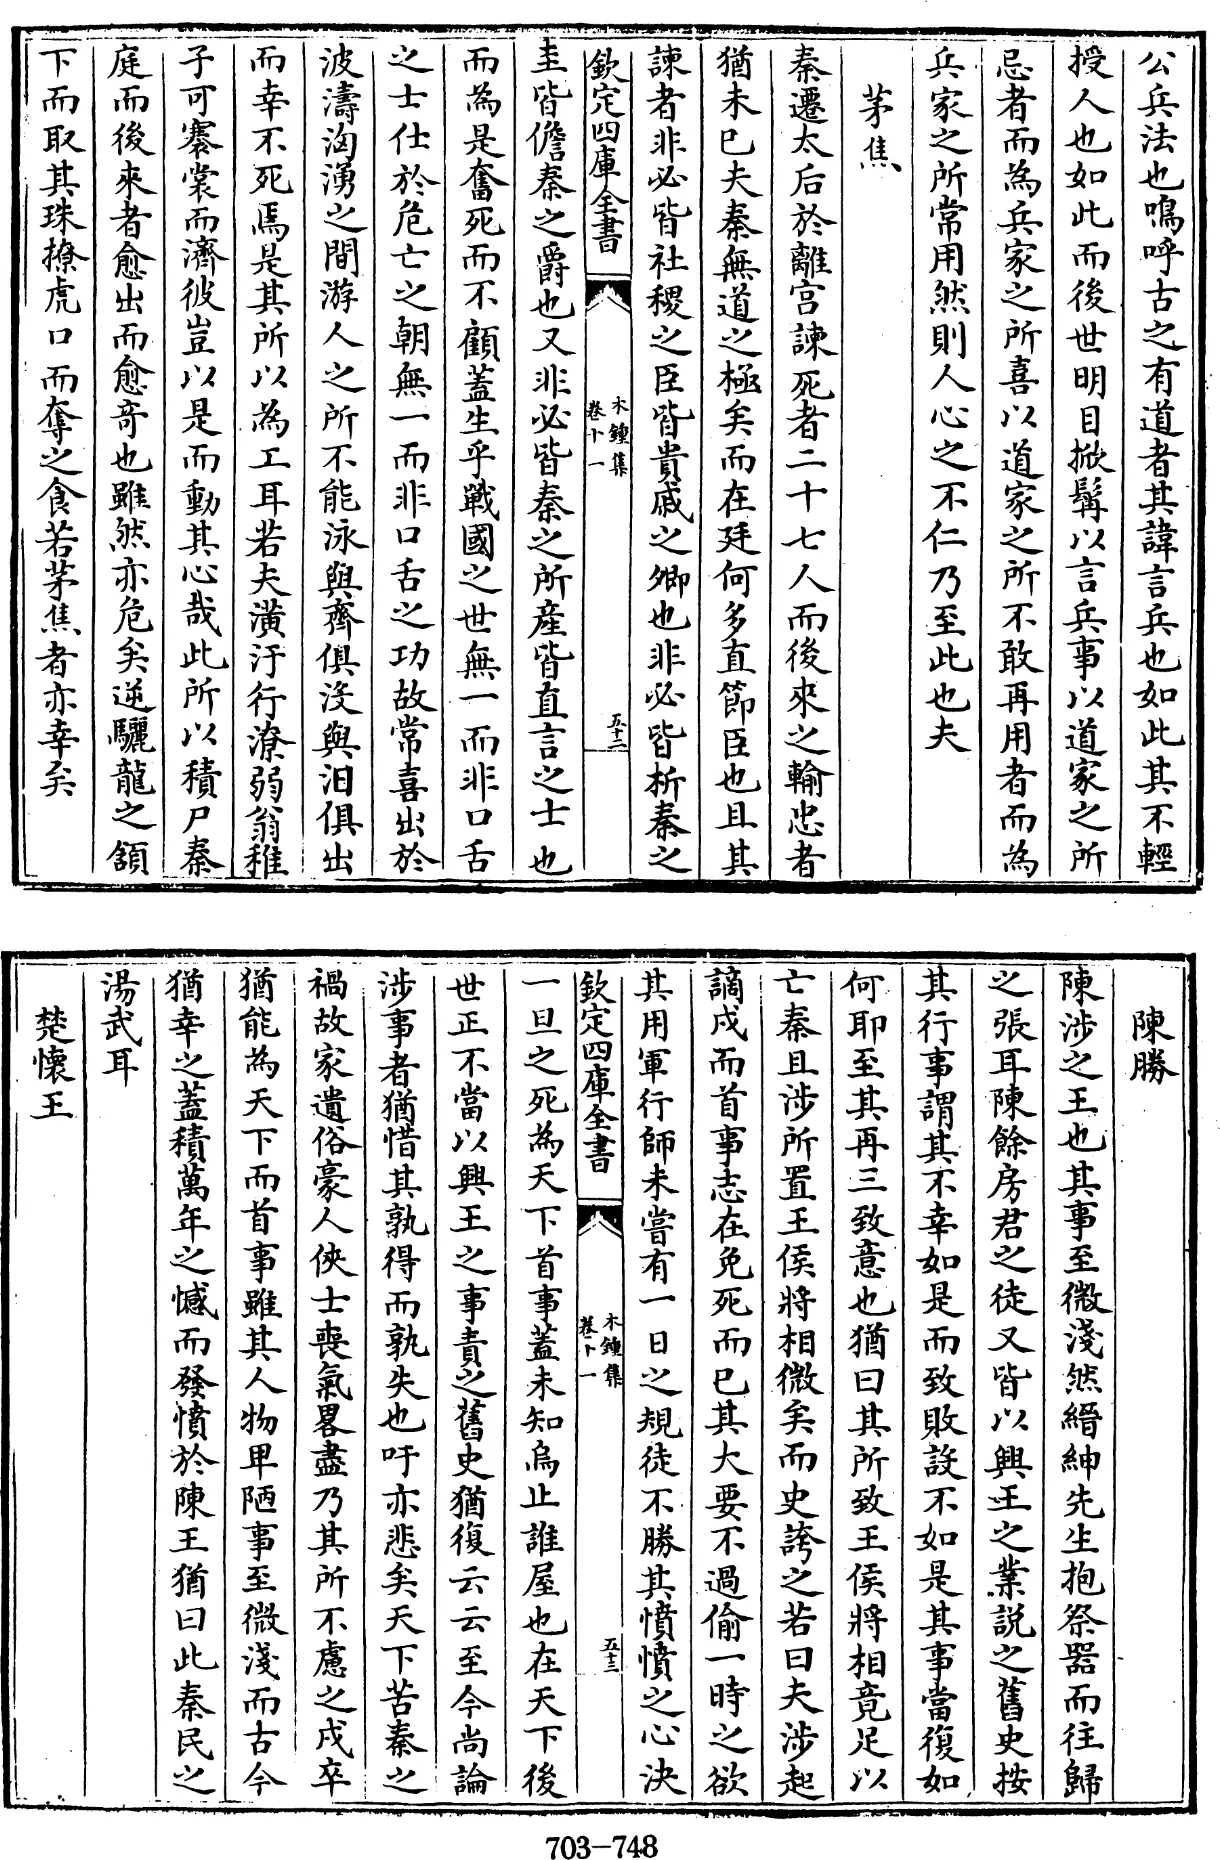 公兵法也嗚呼古之有道者其諱言兵也如此其不輕
授人也如此而後世明目掀髯以言兵事以道家之所
忌者而為兵家之所喜以道家之所不敢再用者而為
兵家之所常用然則人心之不仁乃至此也夫
茅焦
秦遷太后於離宫諫死者二十七人而後來之輸忠者
猶未已夫秦無道之極矣而在廷何多直節臣也且其
諫者非必皆社稷之臣皆貴戚之卿也非必皆析秦之
欽定四庫全書
木鍾集
卷十一
五十二
圭皆儋秦之爵也又非必皆秦之所産皆直言之士也
而為是奮死而不顧蓋生乎戰國之世無一而非口舌
之士仕於危亡之朝無一而非口舌之功故常喜出於
波濤洶湧之間游人之所不能泳與齊俱没與汨俱出
而幸不死焉是其所以為工耳若夫潢汙行潦弱翁稚
子可褰裳而濟彼豈以是而動其心哉此所以積尸秦
庭而後來者愈出而愈竒也雖然亦危矣逆驪龍之頷
下而取其珠撩虎口而奪之食若茅焦者亦幸矣
陳勝
陳涉之王也其事至微淺然縉紳先生抱祭器而往歸
之張耳陳餘房君之徒又皆以興王之業説之舊史按
其行事謂其不幸如是而致敗設不如是其事當復如
何耶至其再三致意也猶曰其所致王侯將相竟足以
亡秦且涉所置王侯將相微矣而史誇之若曰夫涉起
謫戍而首事志在免死而已其大要不過偷一時之欲
其用軍行師未嘗有一日之規徒不勝其憤憤之心決
欽定四庫全書
木鍾集
卷十一
五十三
一旦之死為天下首事蓋未知烏止誰屋也在天下後
世正不當以興王之事責之舊史猶復云云至今尚論
涉事者猶惜其孰得而孰失也吁亦悲矣天下苦秦之
禍故家遺俗豪人俠士喪氣畧盡乃其所不慮之戍卒
猶能為天下而首事雖其人物卑陋事至微淺而古今
猶幸之蓋積萬年之憾而發憤於陳王猶曰此秦民之
湯武耳
楚懷王
703-748